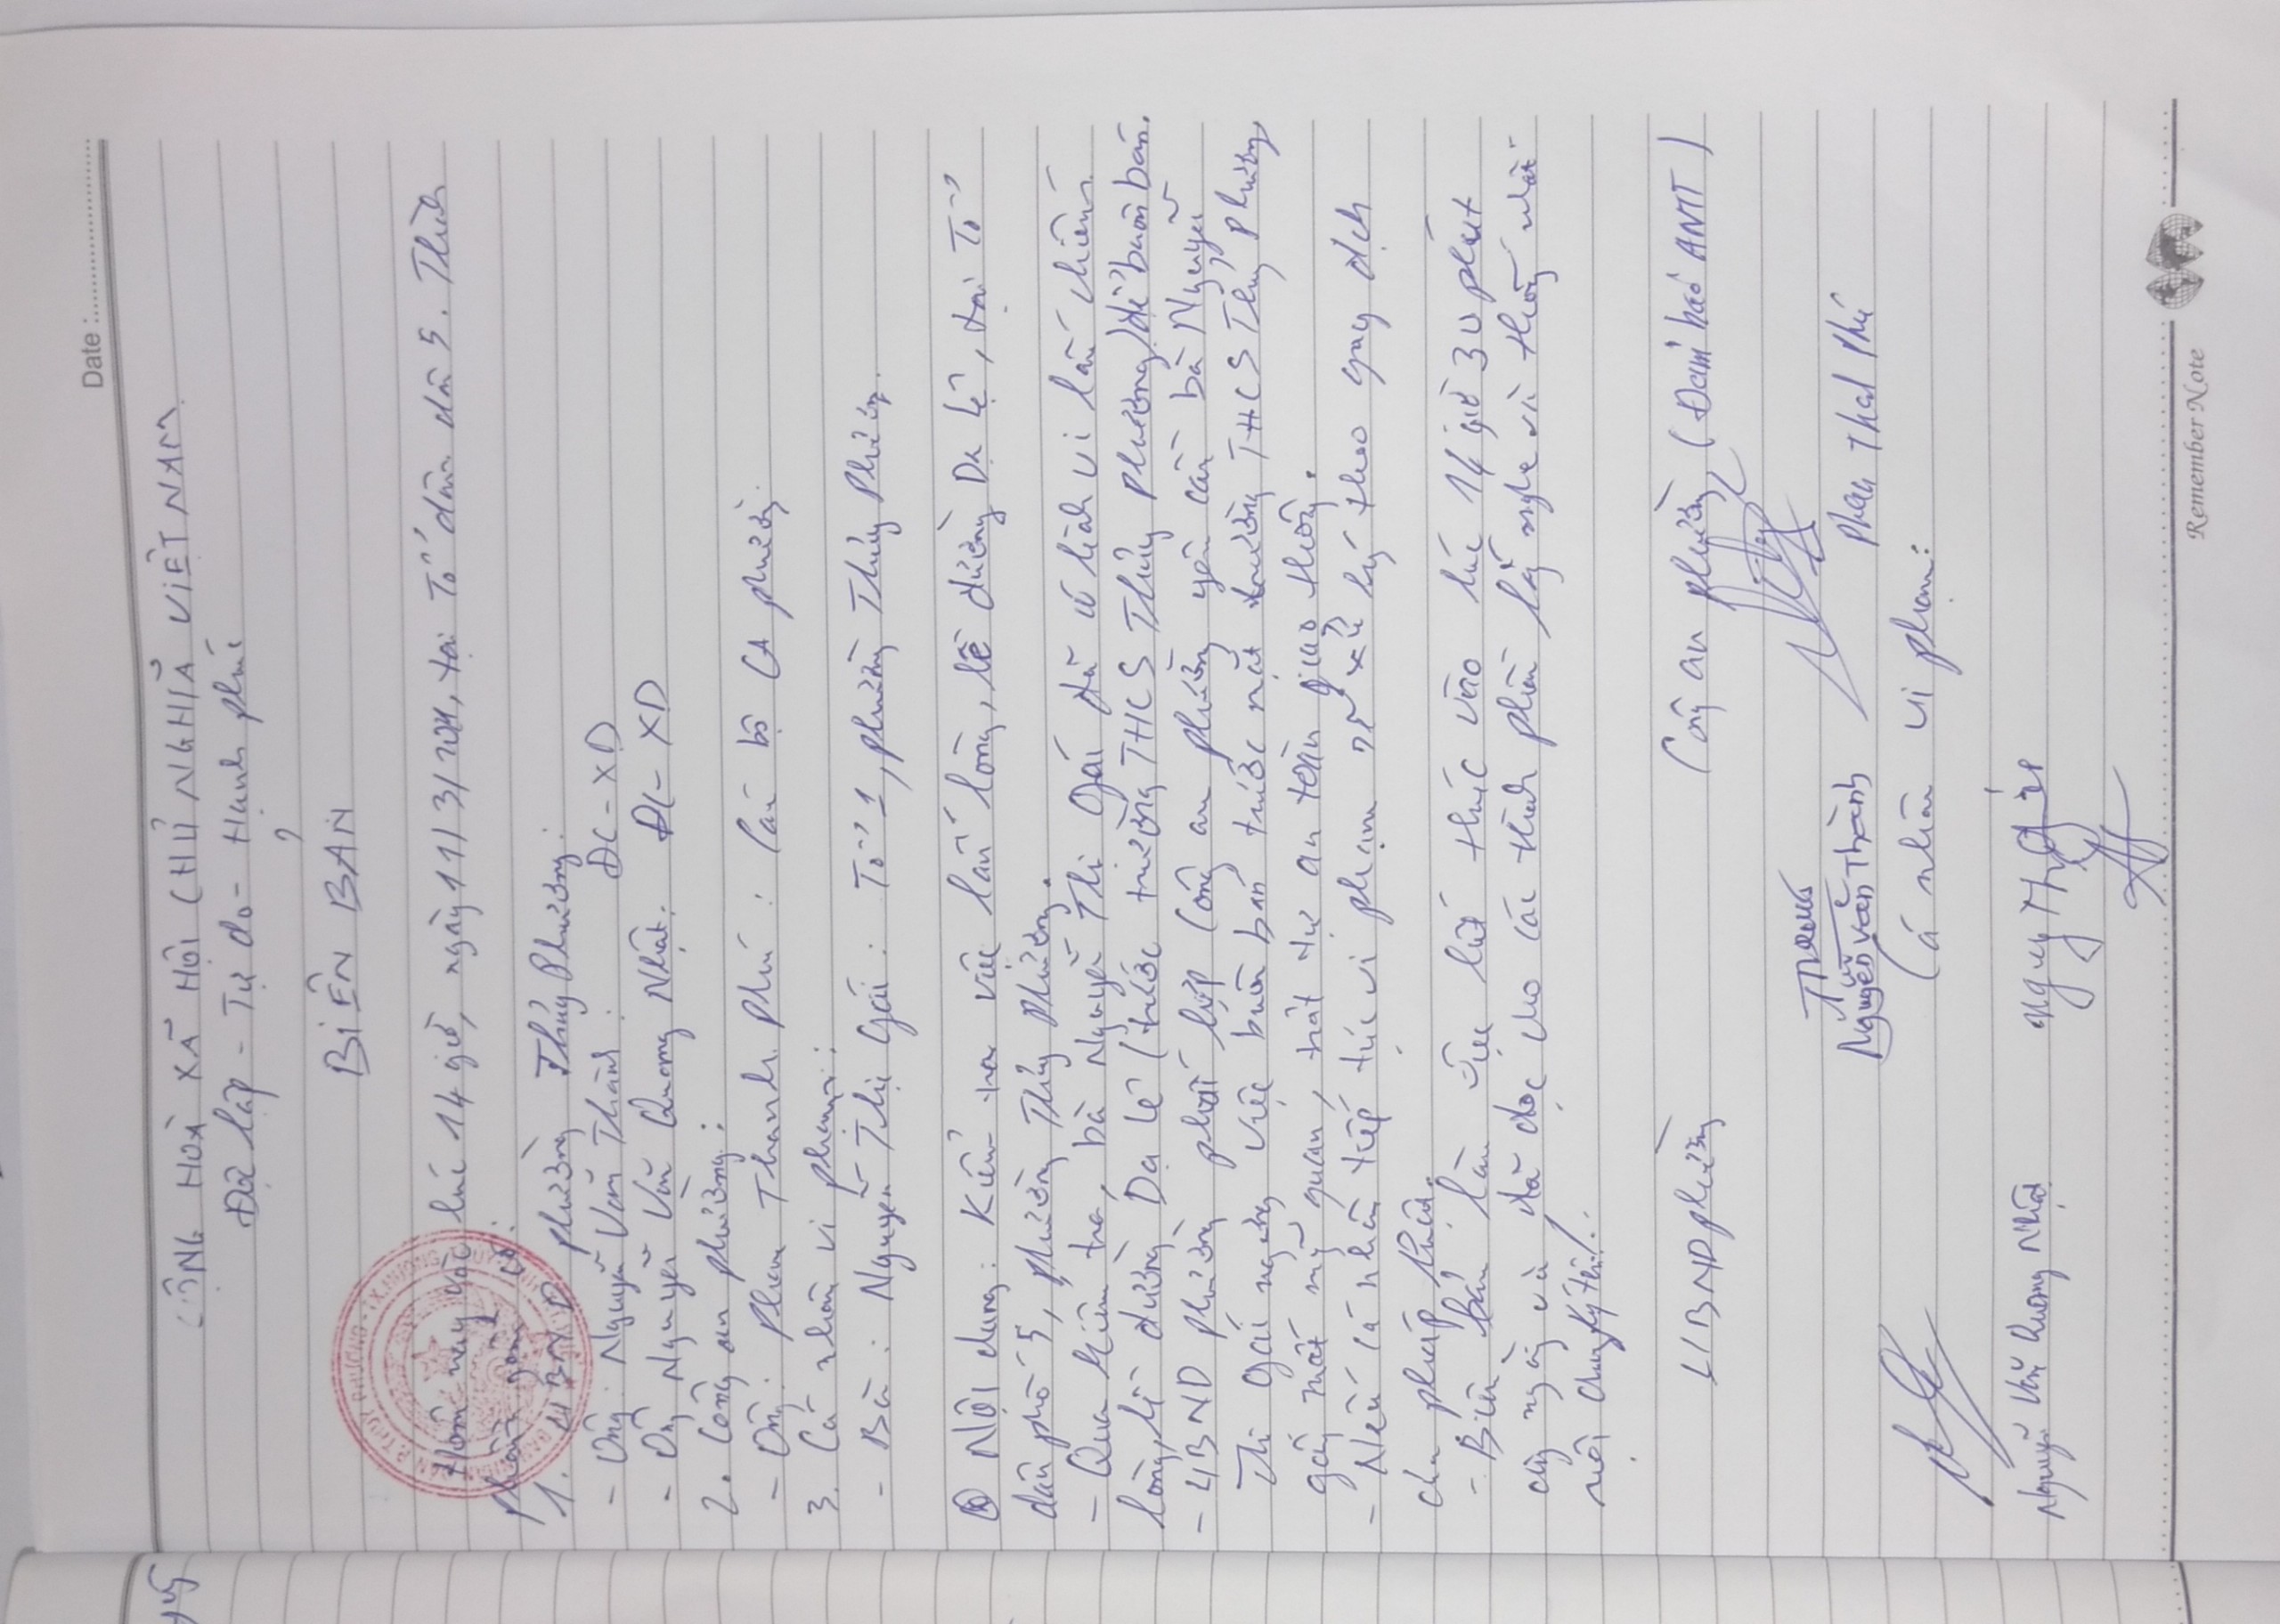 Date :
CỘNG HOÀ XÃ HỘI CHỦ NGHĨA VIỆT NAM
Độc lập - Tự do - Hạnh phúc
BIÊN BẢN
Hôm nay vào lúc 14 giờ, ngày 11/3/2021, tại Tổ dân phố 5. Thành
phần gồm có:
1. UBND phường Thủy Phương:
- Ông: Nguyễn Văn Thành: ĐC-XD
- Ông Nguyễn Văn Quang Nhật. ĐC-XD
2. Công an phường:
- Ông: Phan Thanh Phú: Cán bộ CA phường.
3. Cá nhân vi phạm:
- Bà: Nguyễn Thị Gái: Tổ 1, phường Thủy Phương.
Nội dung: Kiểm tra việc lấn lòng, lề đường Dạ Lê, tại Tổ
dân phố 5, phường Thủy Phương.
- Qua kiểm tra, bà Nguyễn Thị Gái đã có hành vi lấn chiếm
lòng, lề đường Dạ Lê (trước trường THCS Thủy Phương) để buôn bán.
- UBND phường phối hợp Công an phường yêu cầu bà Nguyễn
Thị Gái ngừng việc buôn bán trước mặt trường THCS Thủy Phương,
gây mất mỹ quan, trật tự an toàn giao thông.
- Nếu cá nhân tiếp tục vi phạm sẽ xử lý theo quy định
của pháp luật.
- Biên bản làm việc kết thúc vào lúc 14 giờ 30 phút
cùng ngày và đã đọc cho các thành phần lắng nghe và thống nhất
nội dung ký tên./.
UBND phường
Công an phường (Đảm bảo ANTT)
Nguyễn Văn Thành
Phan Thanh Phú
Cá nhân vi phạm:
Nguyễn Văn Quang Nhật
Remember Note